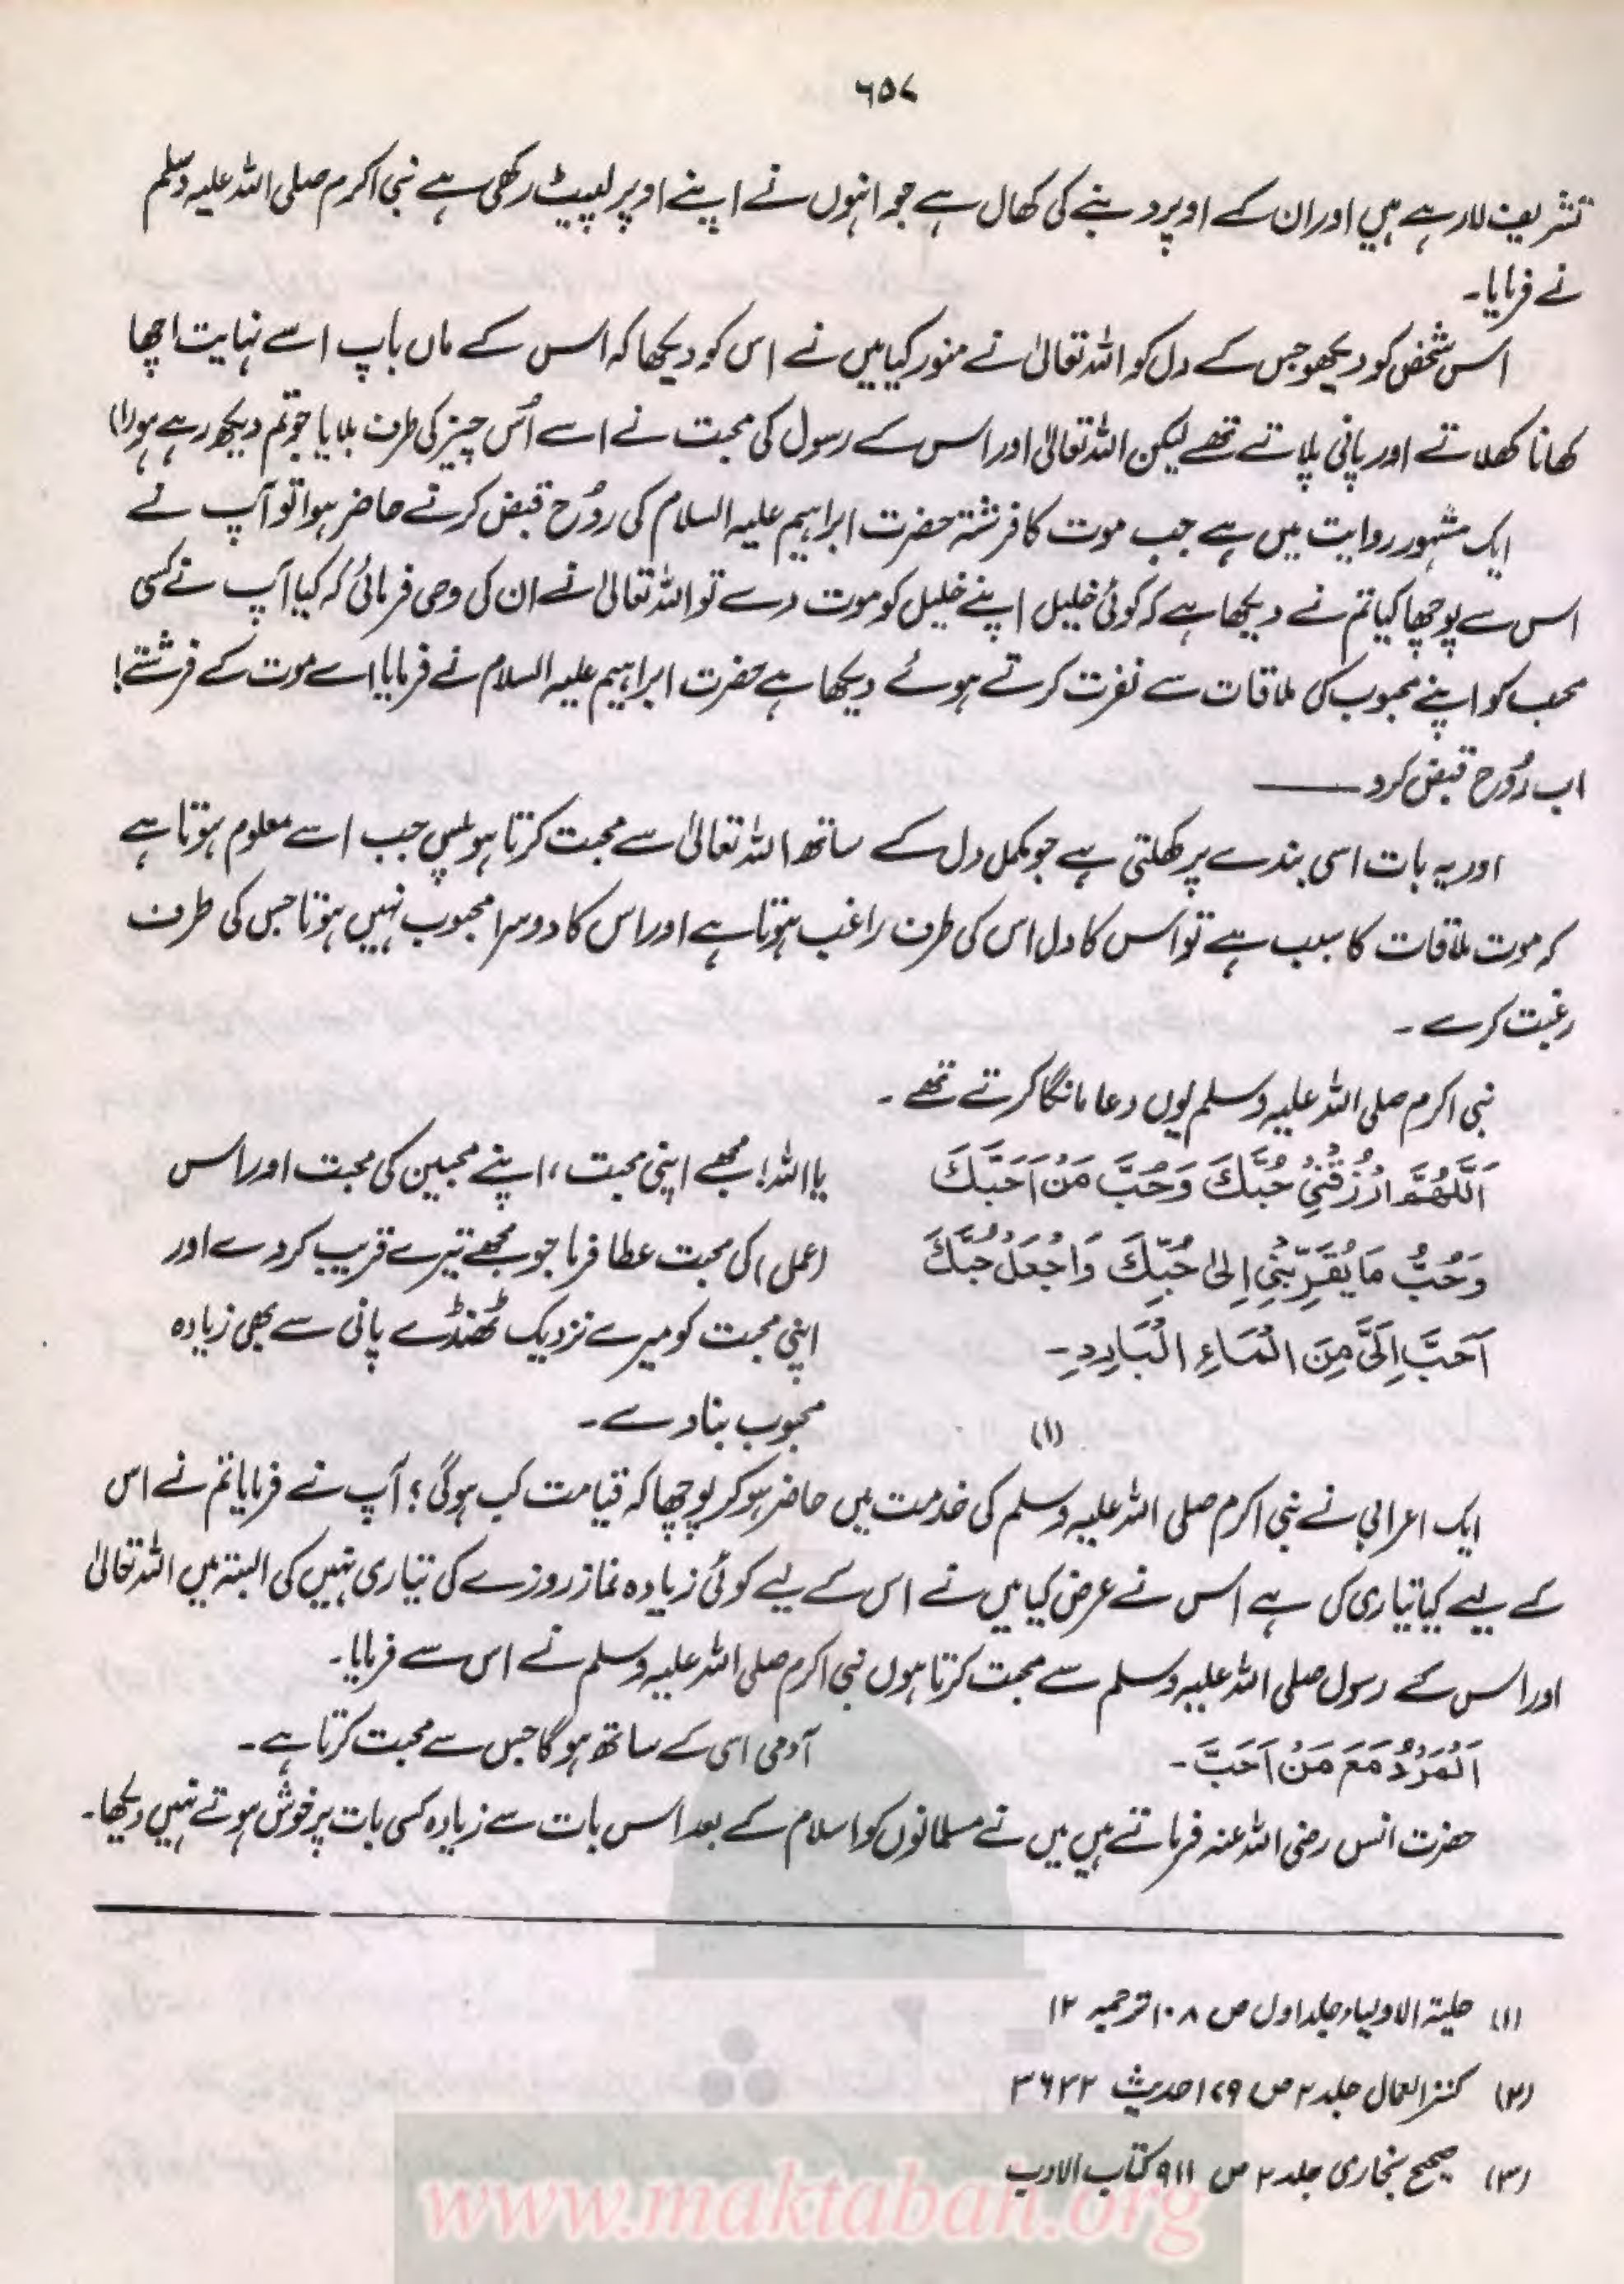 ۶۵۷
تشریف لا رہے ہیں اور ان کے اوپر دنبے کی کھال ہے جو انہوں نے اپنے اوپر لپیٹ رکھی ہے نبی اکرم صلی اللہ علیہ وسلم
نے فرمایا۔
اس شخص کو دیکھو جس کے دل کو اللہ تعالیٰ نے منور کیا میں نے اس کو دیکھا کہ اس کے ماں باپ اسے نہایت اچھا
کھانا کھلاتے اور پانی پلاتے تھے لیکن اللہ تعالیٰ اور اس کے رسول کی محبت نے اسے اُس چیز کی طرف بلایا جو تم دیکھ رہے ہو (۱)
ایک مشہور روایت میں ہے جب موت کا فرشتہ حضرت ابراہیم علیہ السلام کی رُوح قبض کرنے حاضر ہوا تو آپ نے
اس سے پوچھا کیا تم نے دیکھا ہے کہ کوئی خلیل اپنے خلیل کو موت دے تو اللہ تعالیٰ نے ان کی وحی فرمائی کہ کیا آپ نے کسی
محب کو اپنے محبوب کی ملاقات سے نفرت کرتے ہوئے دیکھا ہے حضرت ابراہیم علیہ السلام نے فرمایا اے موت کے فرشتے!
اب رُوح قبض کرو ——
اور یہ بات اسی بندے پر کھلتی ہے جو مکمل دل کے ساتھ اللہ تعالیٰ سے محبت کرتا ہو پس جب اسے معلوم ہوتا ہے
کہ موت ملاقات کا سبب ہے تو اس کا دل اس کی طرف راغب ہوتا ہے اور اس کا دوسرا محبوب نہیں ہوتا جس کی طرف
رغبت کرے۔
نبی اکرم صلی اللہ علیہ وسلم یوں دعا مانگا کرتے تھے۔
اَللّٰهُمَّ ارْزُقْنِیْ حُبَّكَ وَحُبَّ مَنْ اَحَبَّكَ
وَحُبَّ مَا یُقَرِّبُنِیْ اِلیٰ حُبِّكَ وَاجْعَلْ حُبَّكَ
اَحَبَّ اِلَیَّ مِنَ الْمَاءِ الْبَارِدِ۔
(۱)
یا اللہ! مجھے اپنی محبت، اپنے محبین کی محبت اور اس
(عمل) کی محبت عطا فرما جو مجھے تیرے قریب کر دے اور
اپنی محبت کو میرے نزدیک ٹھنڈے پانی سے بھی زیادہ
محبوب بنا دے۔
ایک اعرابی نے نبی اکرم صلی اللہ علیہ وسلم کی خدمت میں حاضر ہو کر پوچھا کہ قیامت کب ہوگی؟ آپ نے فرمایا تم نے اس
کے لیے کیا تیاری کی ہے اس نے عرض کیا میں نے اس کے لیے کوئی زیادہ نماز روزے کی تیاری نہیں کی البتہ میں اللہ تعالیٰ
اور اس کے رسول صلی اللہ علیہ وسلم سے محبت کرتا ہوں نبی اکرم صلی اللہ علیہ وسلم نے اس سے فرمایا۔
اَلْمَرْءُ مَعَ مَنْ اَحَبَّ۔
آدمی اسی کے ساتھ ہو گا جس سے محبت کرتا ہے۔
حضرت انس رضی اللہ عنہ فرماتے ہیں میں نے مسلمانوں کو اسلام کے بعد اس بات سے زیادہ کسی بات پر خوش ہوتے نہیں دیکھا۔
(۱) حلیۃ الاولیاء جلد اول ص ۱۰۸ ترجمہ ۱۲
(۲) کنز العمال جلد ۲ ص ۱۷۹ حدیث ۳۶۲۲
(۳) صحیح بخاری جلد ۲ ص ۹۱۱ کتاب الادب
www.maktabah.org